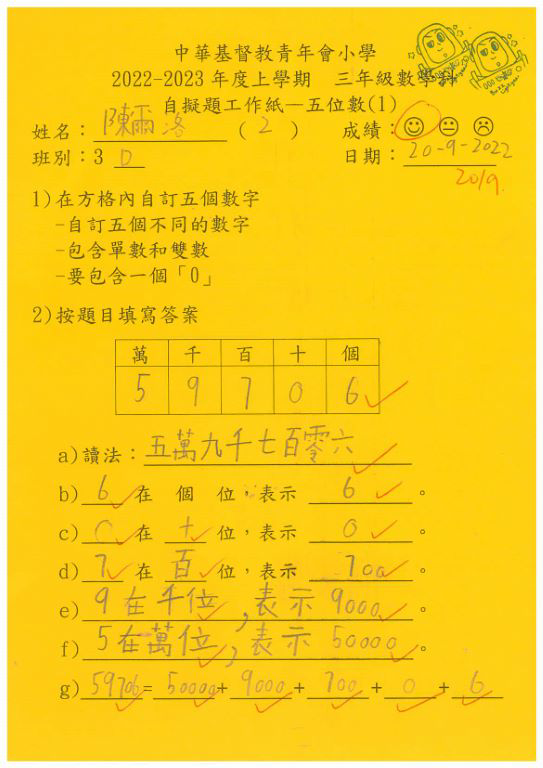 中華基督教青年會小學
2022-2023 年度上學期 三年級數學科
自擬題工作紙—五位數(1)
姓名：陳爾洛 ( 2 ) 成績：
班別：3 D 日期：20-9-2022
20/9.
1)在方格內自訂五個數字
-自訂五個不同的數字
-包含單數和雙數
-要包含一個「0」
2)按題目填寫答案
萬 千 百 十 個
5 9 7 0 6
a)讀法：五萬九千七百零六
b) 6 在 個 位，表示 6 。
c) 0 在 十 位，表示 0 。
d) 7 在 百 位，表示 700 。
e) 9在千位，表示9000 。
f) 5在萬位，表示50000 。
g) 59706= 50000+ 9000 + 700 + 0 + 6